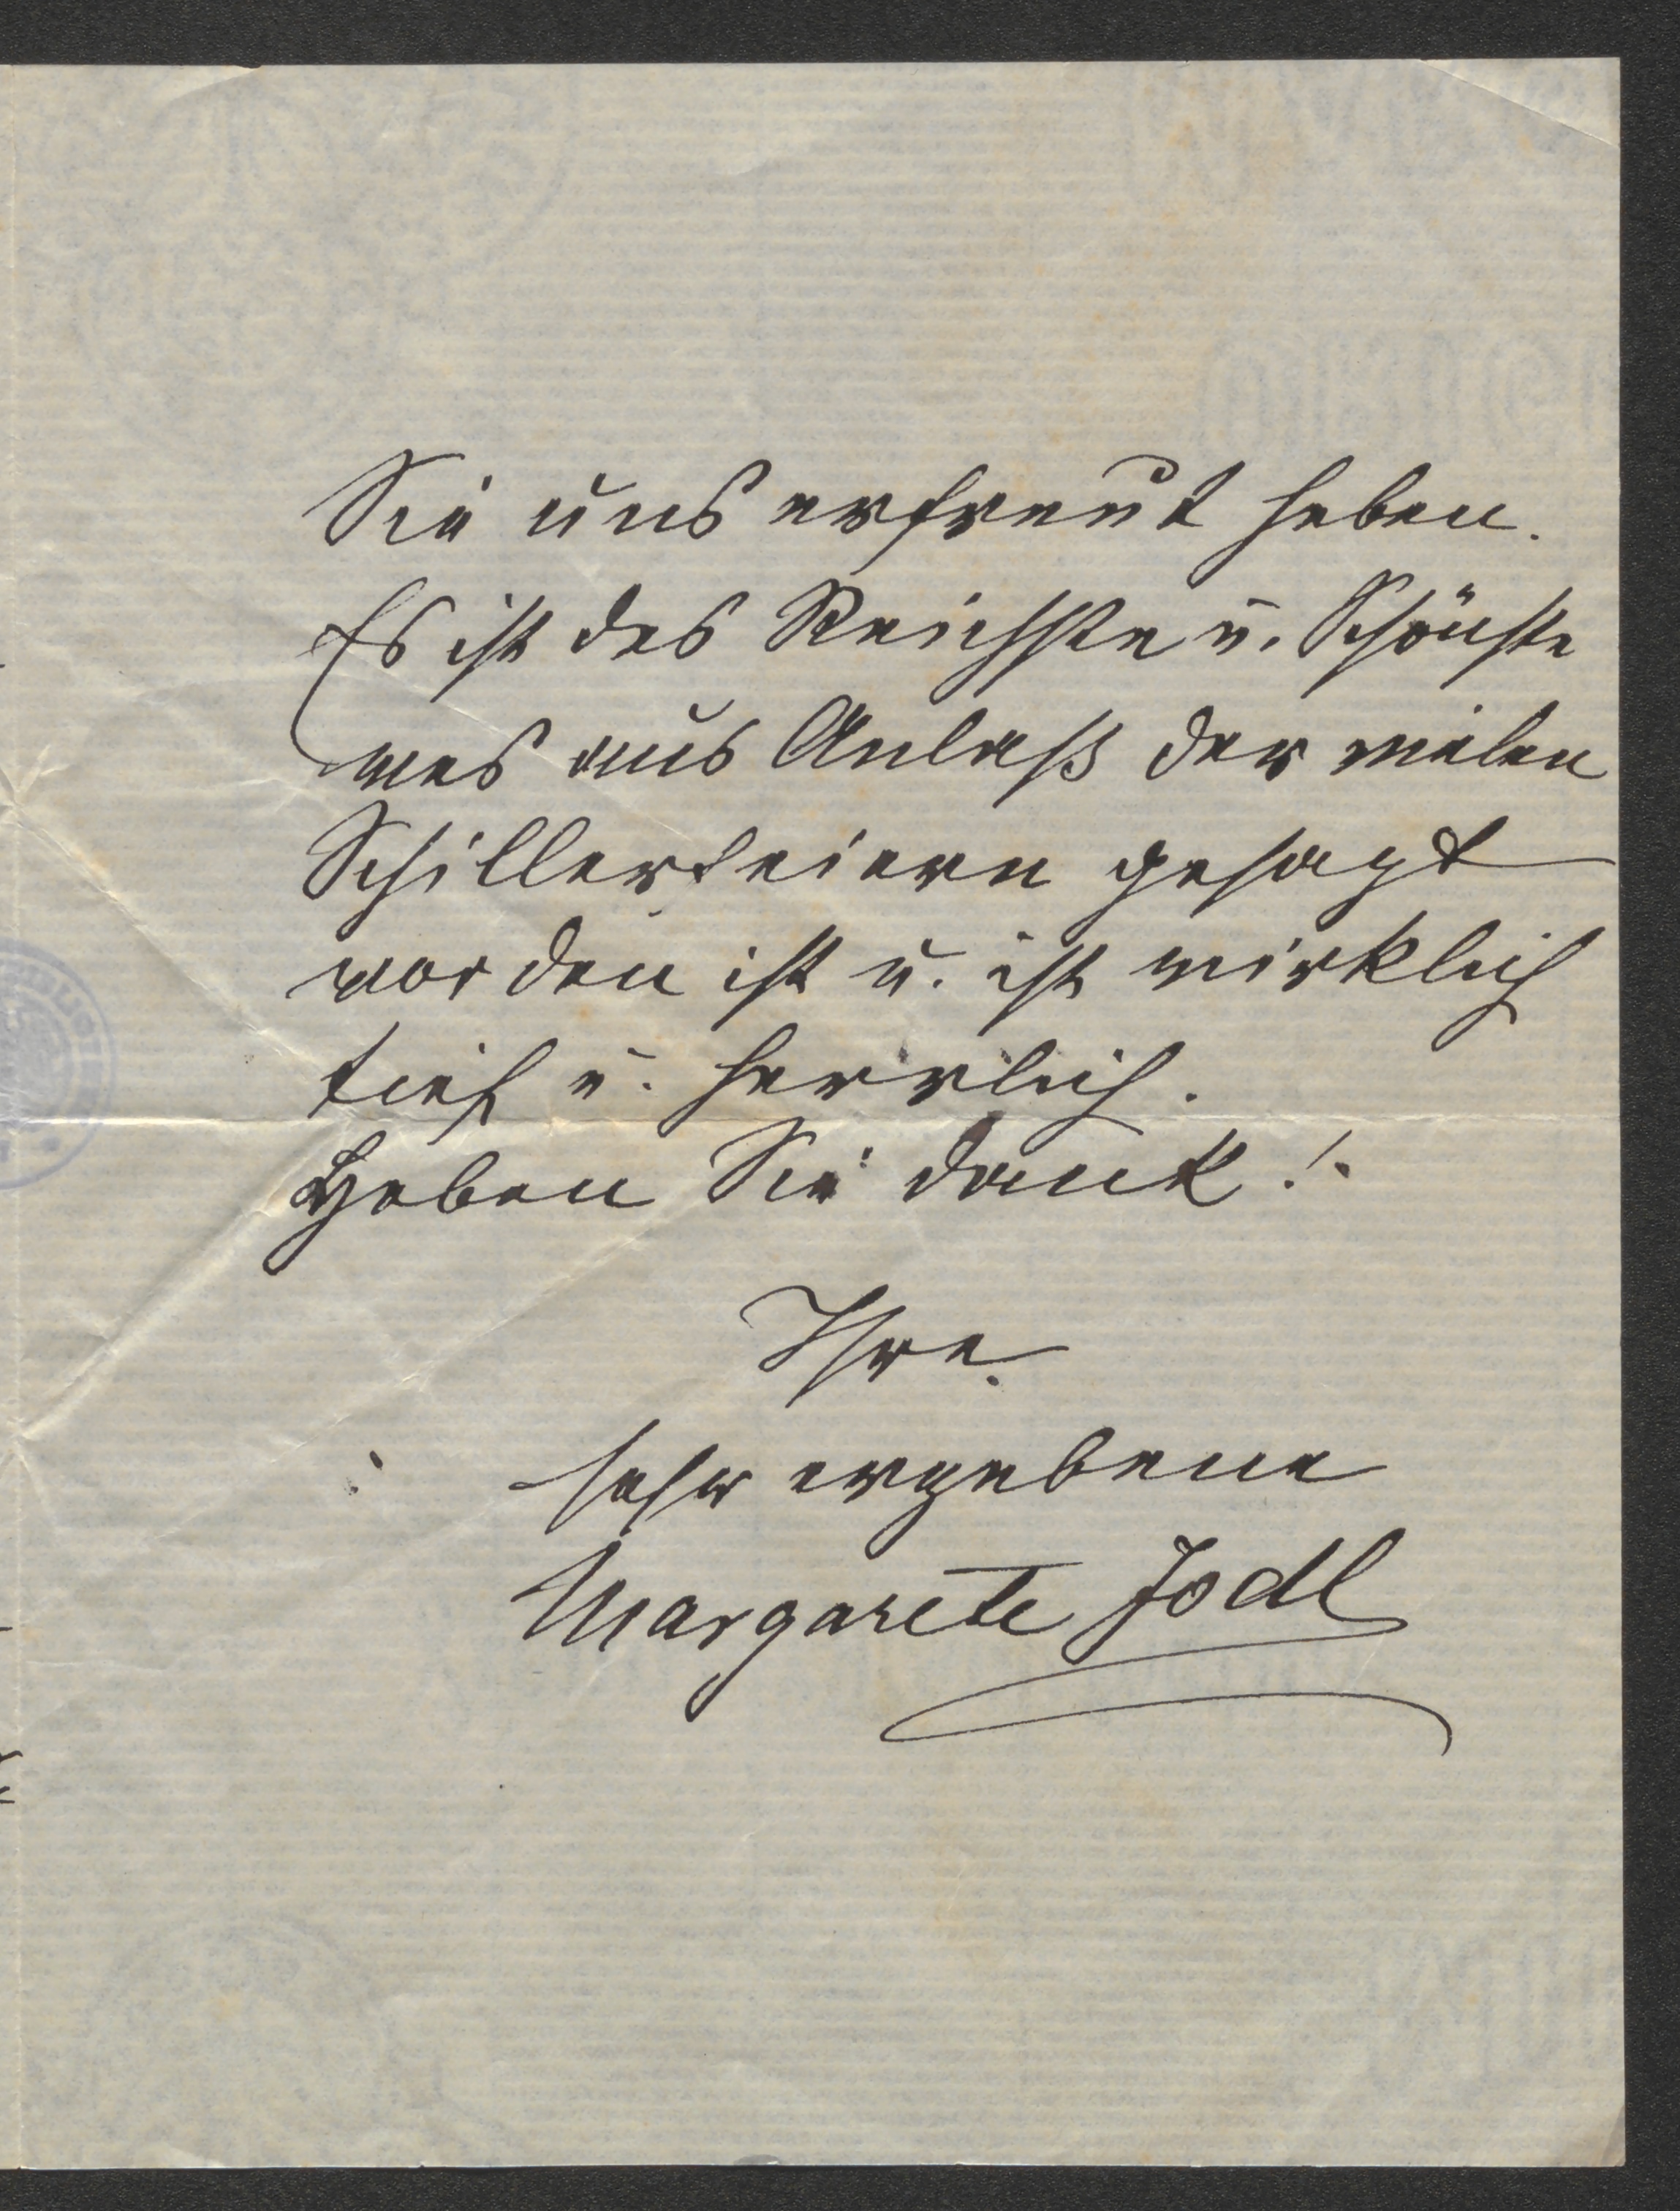 Sie uns erfreut haben.
Es ist das Reichste u. Schönste
was aus Anlaß der vielen
Schillerfeiern gesagt
worden ist u. ist wirklich
tief u. herrlich.
Haben Sie dank!
Ihre
sehr ergebene
Margarete Jodl